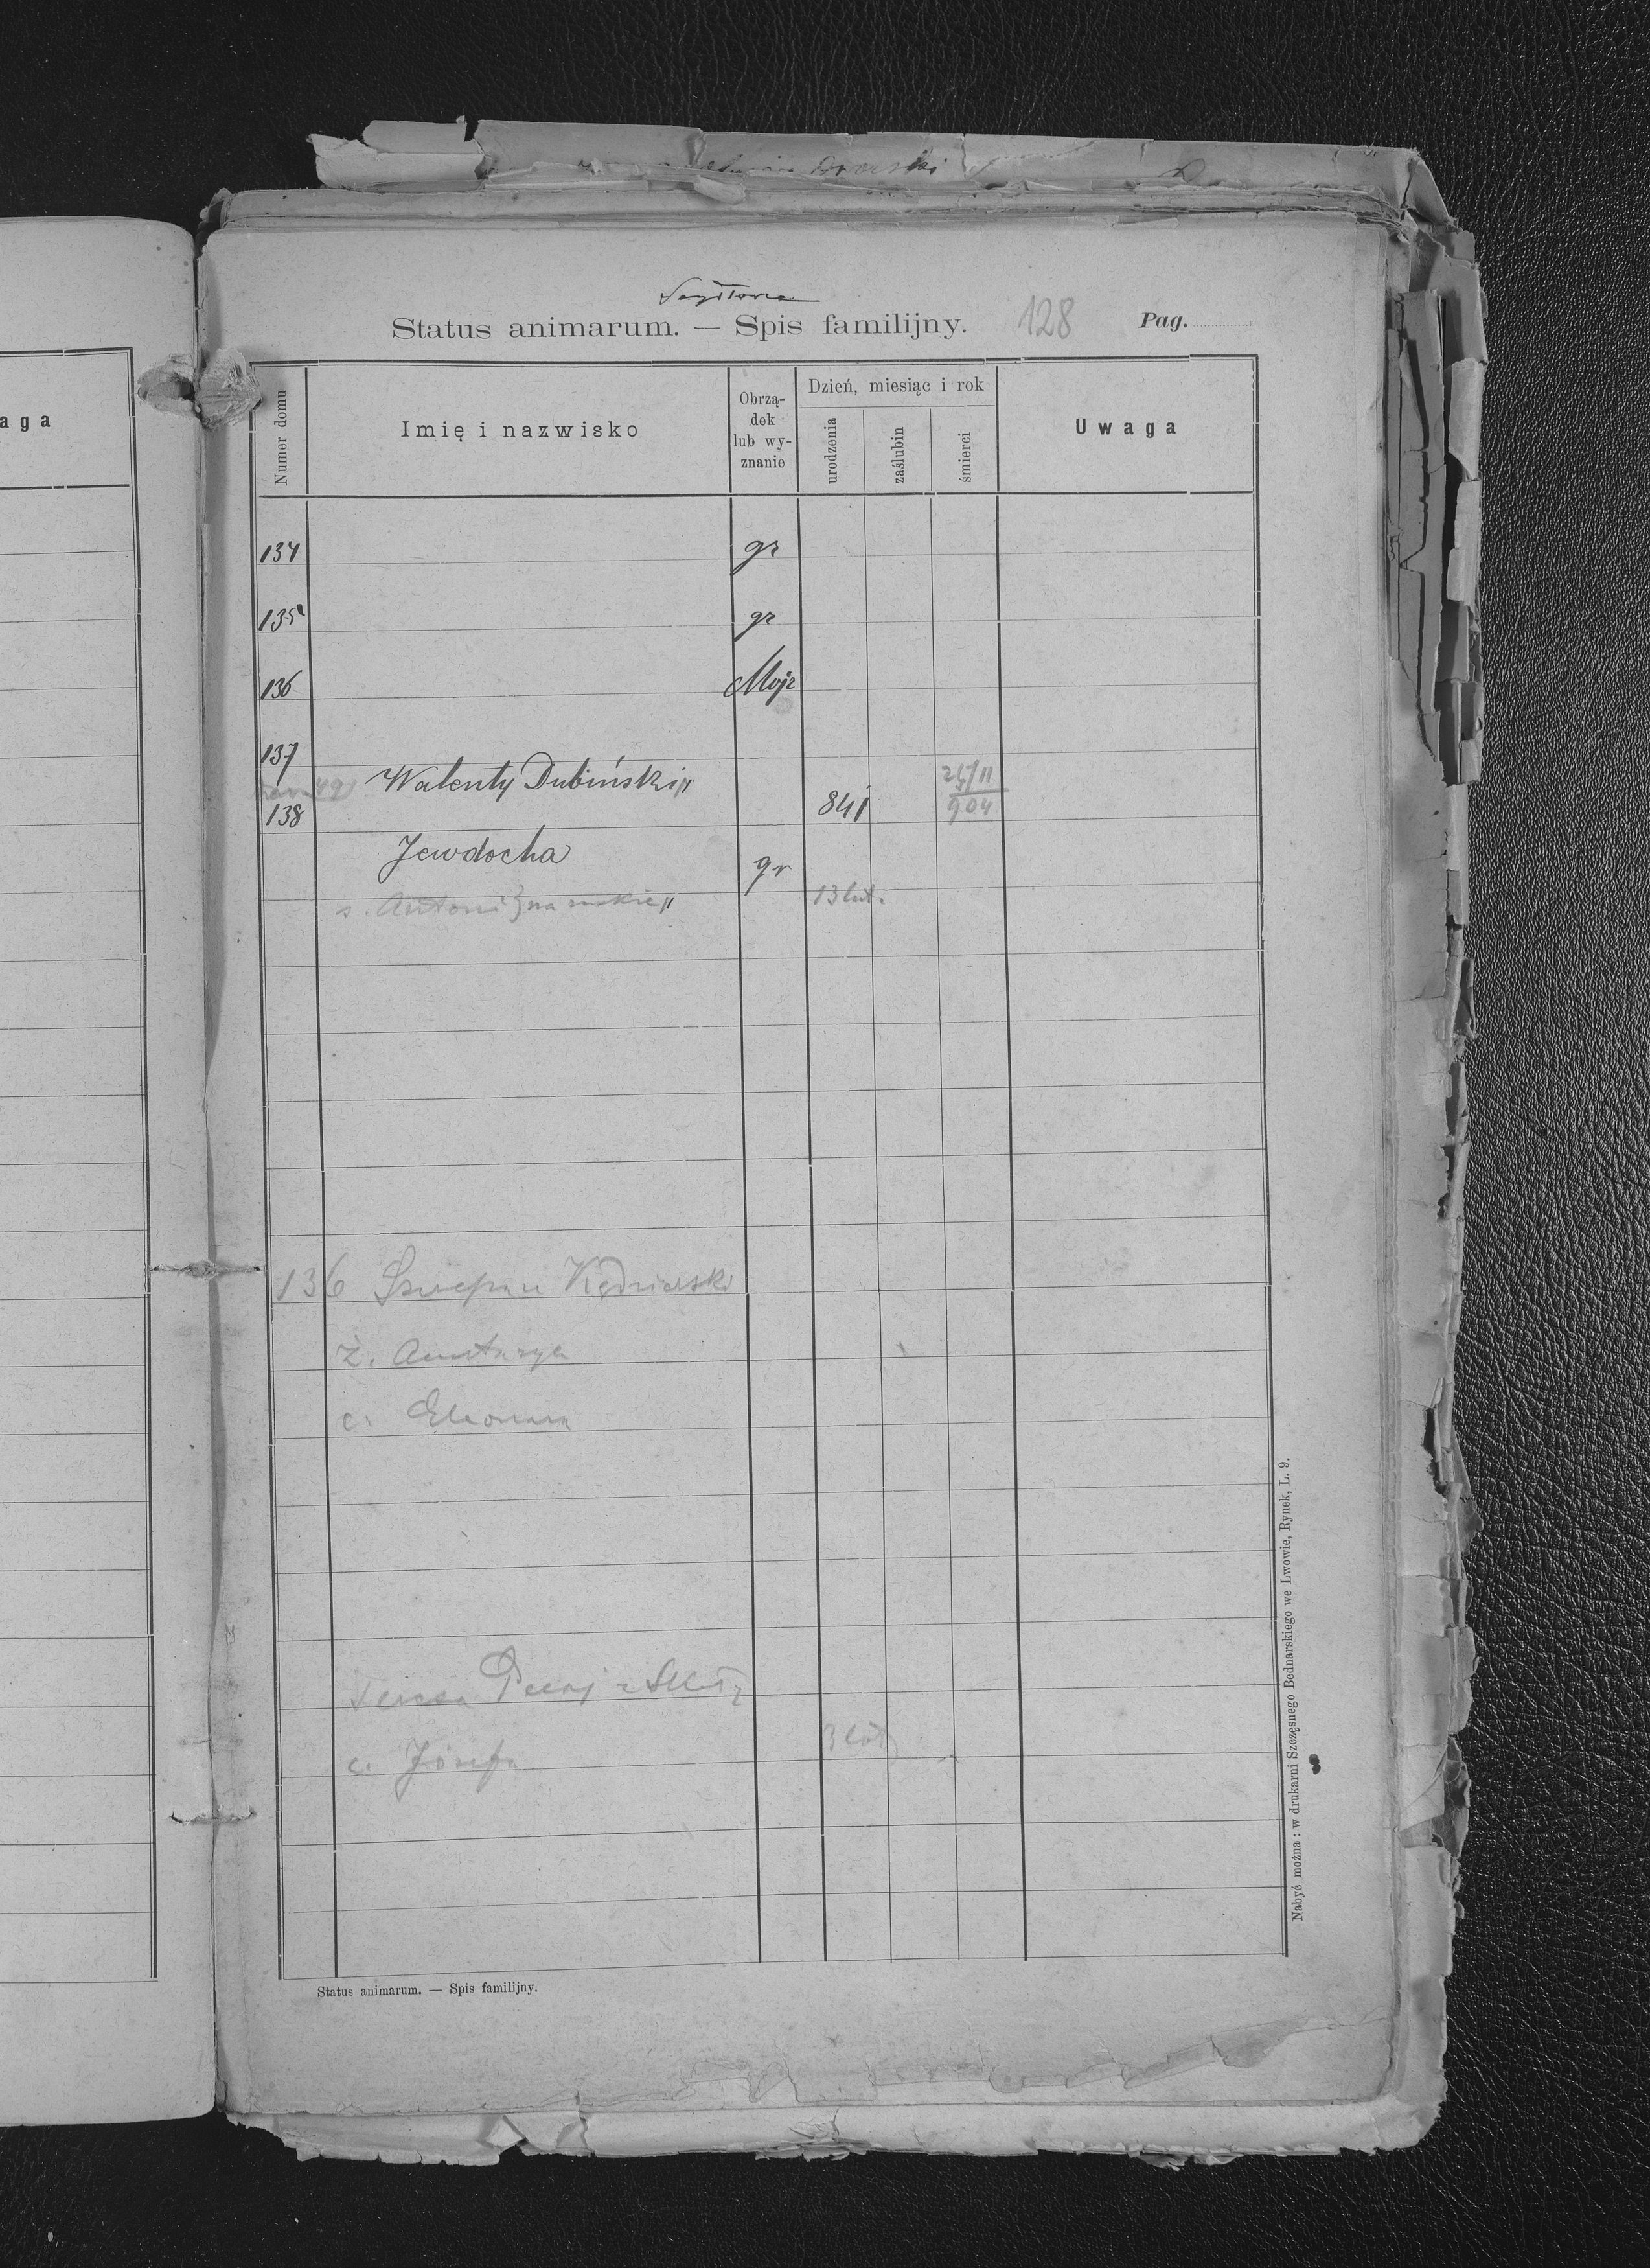 aga
Status animarum. — Spis familijny.
128
Pag.
Numer domu
Imię i nazwisko
Obrzą-
dek
lub wy-
znanie
Dzień, miesiąc i rok
urodzenia
zaślubin
śmierci
Uwaga
134 gr
135 gr
136 Mojż
137
Walenty Dubiński
138 841 904
Jewdocha gr
s. Antoni 13 lut.
136 Szczepan Kędzierski
ż.
c. Eleonora
Teresa
c. Józefa 3
Nabyć można: w drukarni Szczęsnego Bednarskiego we Lwowie, Rynek, L. 9.
Status animarum. — Spis familijny.